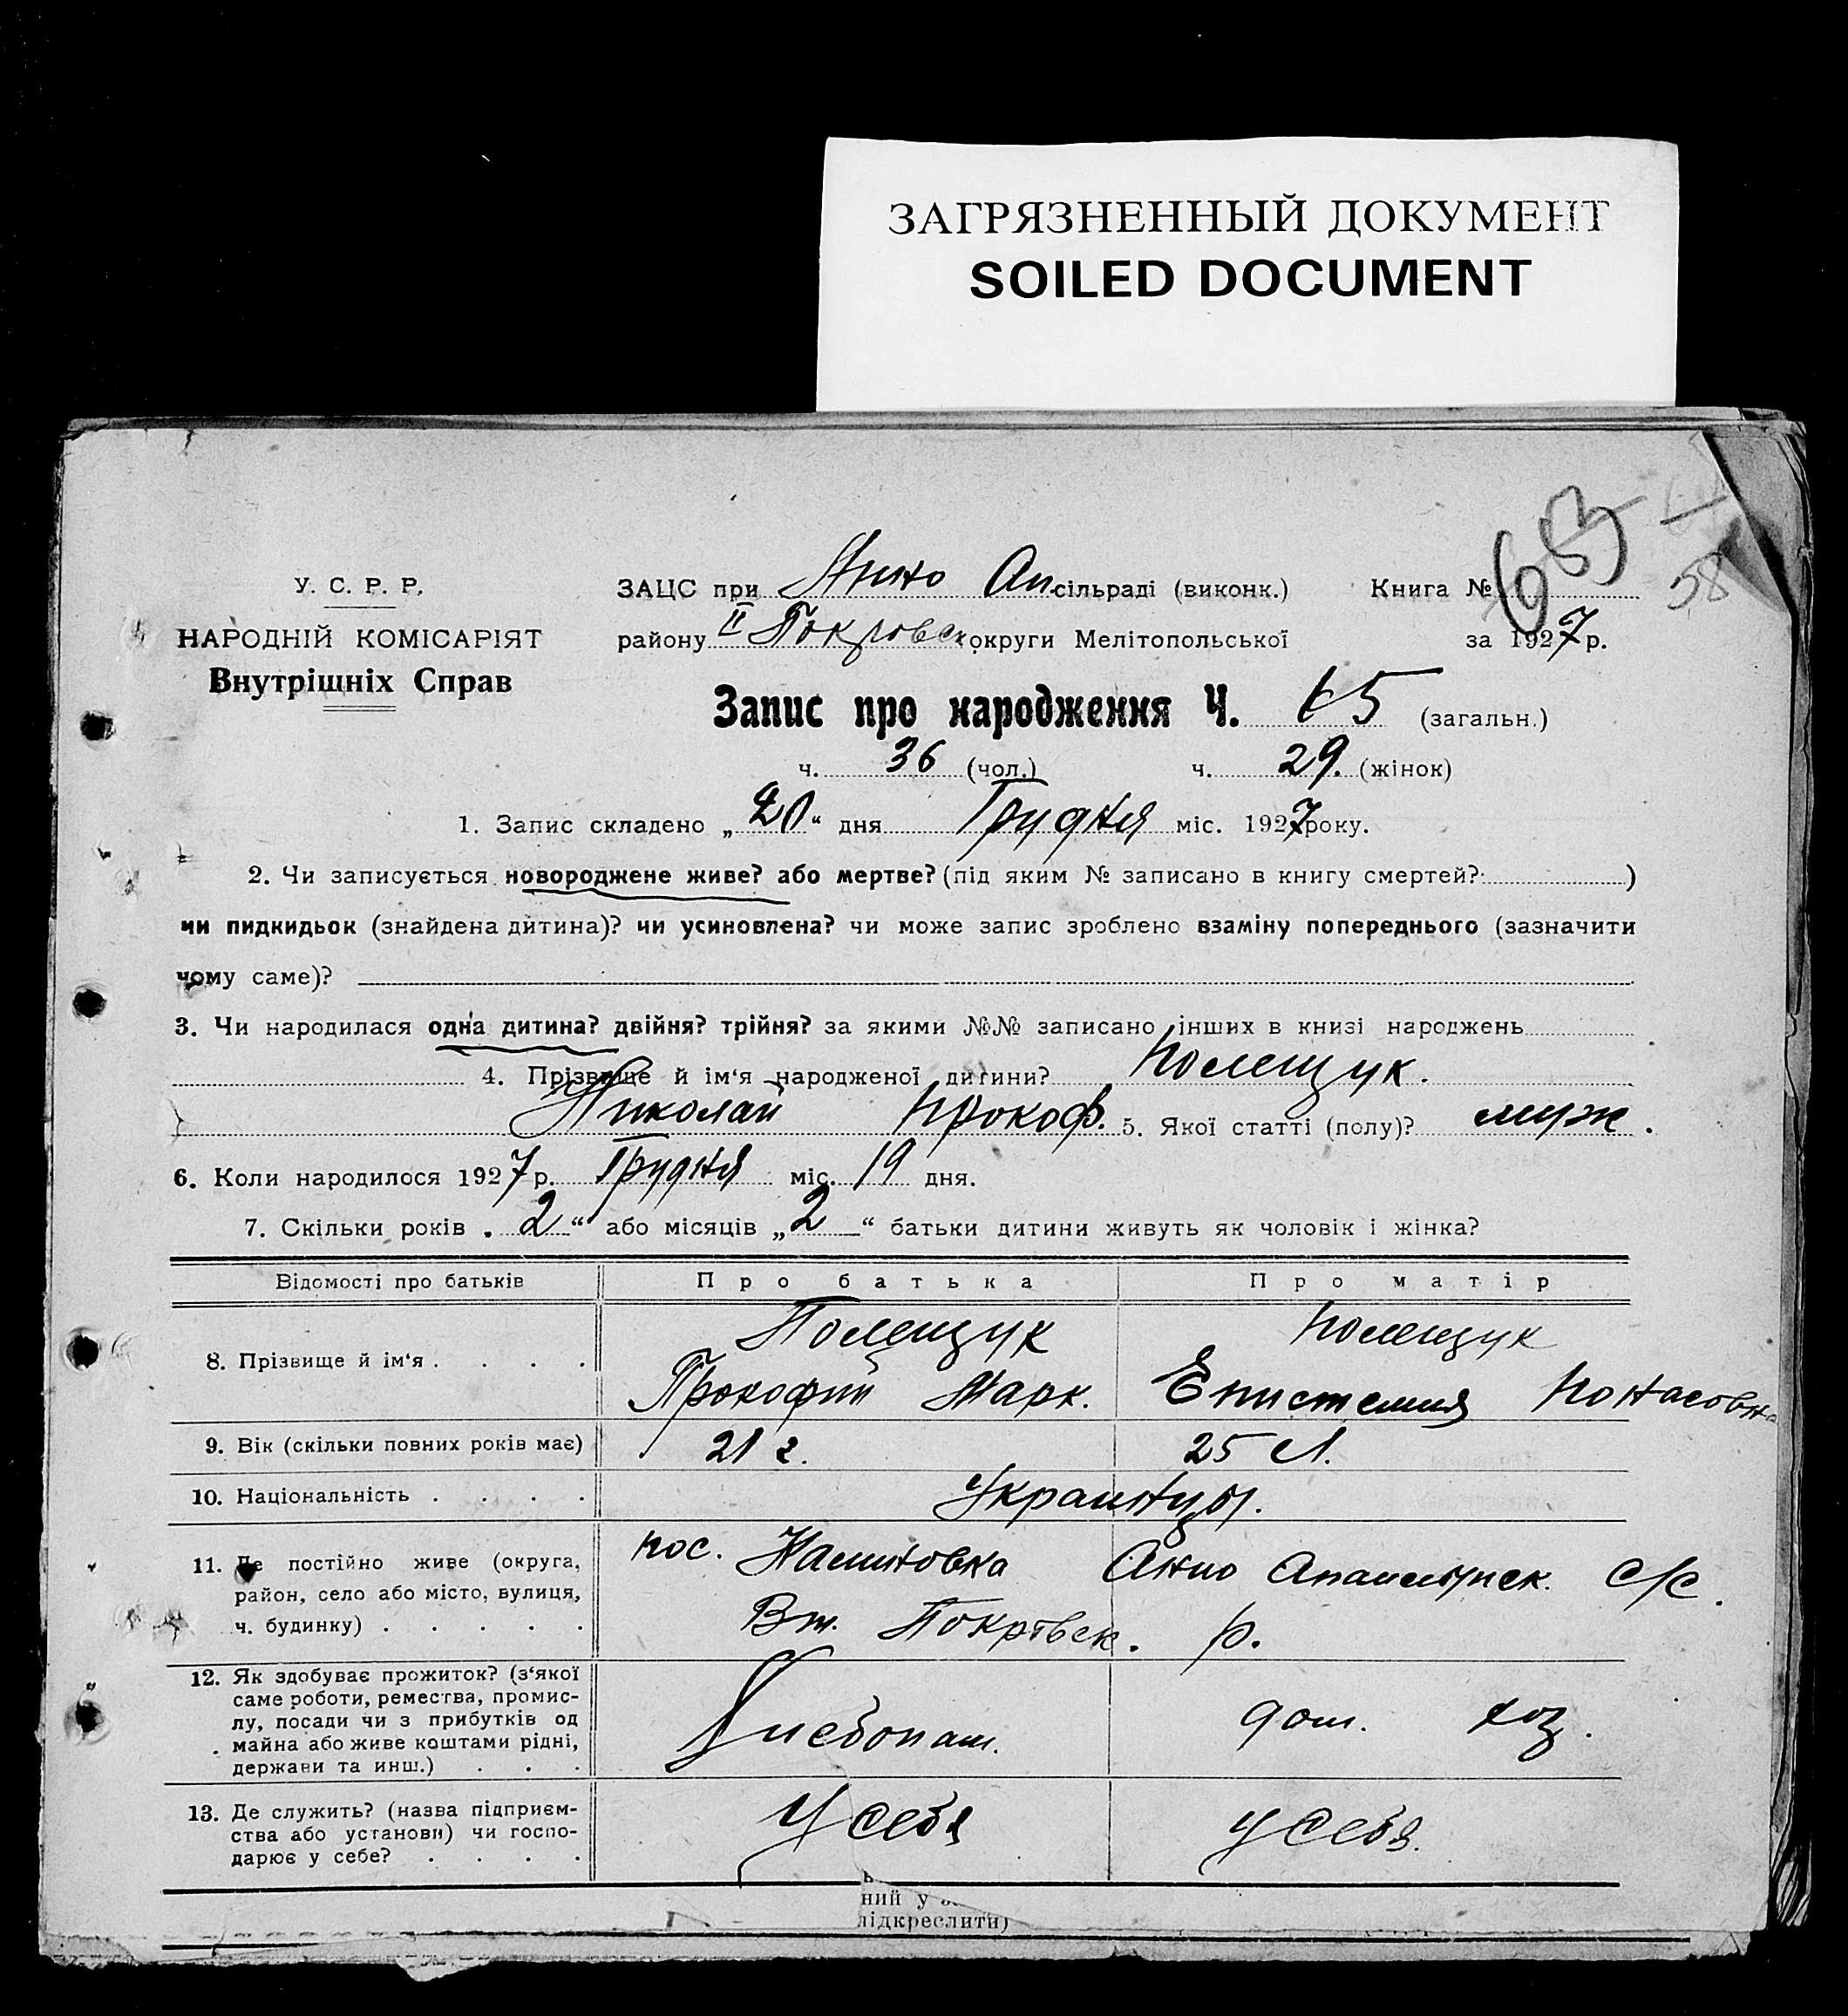 ЗАГРЯЗНЕННЫЙ ДОКУМЕНТ
SOILED DOCUMENT
У. С. Р. Р.
НАРОДНІЙ КОМІСАРІЯТ
Внутрішніх Справ
ЗАЦС при Анно Оп. сільраді (виконк.) Книга №
58
району ІІ Покровск округи Мелітопольської за 1927 р.
Запис про народження Ч. 65 (загальн.)
ч. 36 (чол.) ч. 29. (жінок)
1. Запис складено „20“ дня Грудня міс. 1927 року.
2. Чи записується новороджене живе? або мертве? (під яким № записано в книгу смертей? )
чи пидкидьок (знайдена дитина)? чи усиновлена? чи може запис зроблено взаміну попереднього (зазначити
чому саме)?
3. Чи народилася одна дитина? двійня? трійня? за якими №№ записано інших в книзі народжень
4. Прізвище й ім‘я народженої дитини? Полещук.
Николай Прокоф. 5. Якої статті (полу)? муж.
6. Коли народилося 1927 р. Грудня міс. 19 дня.
7. Скільки років „2“ або місяців „2“ батьки дитини живуть як чоловік і жінка?
Відомості про батьків Про батька Про матір
8. Прізвище й ім‘я . . . . Полещук Полещук
Прокофий Марк. Епистемия Понасовна
9. Вік (скільки повних років має) 21 г. 25 л.
10. Національність . . . . Украинцы.
11. Де постійно живе (округа,
район, село або місто, вулиця,
ч. будинку) . . . . .
пос. Анно с/с.
Вт. Покровск. р.
12. Як здобуває прожиток? (з‘якої
саме роботи, ремества, промис-
лу, посади чи з прибутків од
майна або живе коштами рідні,
держави та инш.) . . .
Хлебопаш. дом. хоз.
13. Де служить? (назва підприєм-
ства або установи) чи госпо-
дарює у себе? . . . .
У себя у себя.
ний у
підкреслити)